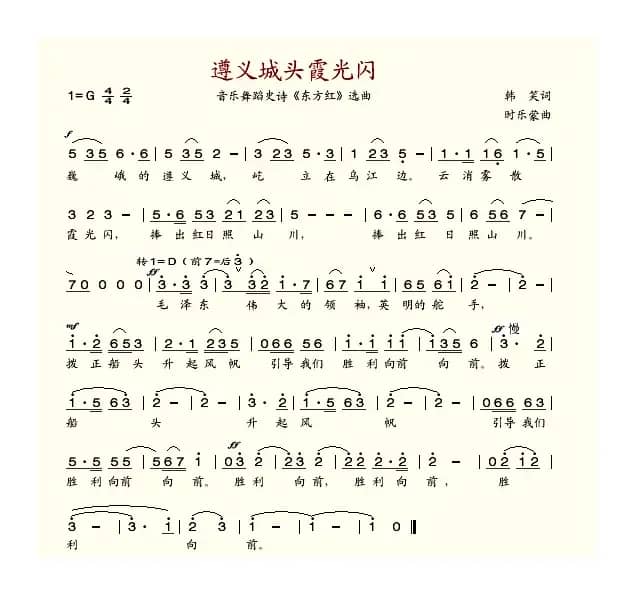 遵义城头霞光闪
1=G 4/4 2/4 音乐舞蹈史诗《东方红》选曲 韩 笑词
时乐蒙曲
f
5 35 6·6 | 5 35 2 - | 3 23 5·3 | 1 23 5 - | 1·1 16 1·5 |
巍 峨的 遵义 城, 屹 立在 乌江 边。 云消 雾散
3 2 3 - | 5·6 53 21 23 | 5 - - - | 6·6 53 5 6 56 | 7 -
霞光闪, 捧出红日照山川, 捧出红日照山川。
转1=D(前7=后3)
ff
70 0 0 0 | 3·3 3 | 3 32 1·7 | 67 1 1 | 65 61 | 2 - | 2 -
毛泽东 伟大的领袖,英明的舵手,
mf ff 慢
1·2 653 | 2·1 235 | 066 56 | 1·2 11 | 135 6 | 3·2
拨正船头升起风帆 引导我们胜利向前 向前。拨正
1·5 63 | 2 - | 2 - | 1·5 63 | 2 - | 2 - | 066 63
船 头 升起风 帆 引导我们
ff
5·5 55 | 567 1 | 03 2 | 23 2 | 22 2·2 | 2 - | 02 12
胜利向前 向前。胜利向前,胜利向前,胜
3 - | 3· 1 | 2 3 | 1 - | 1 - | 1 0
利 向 前。